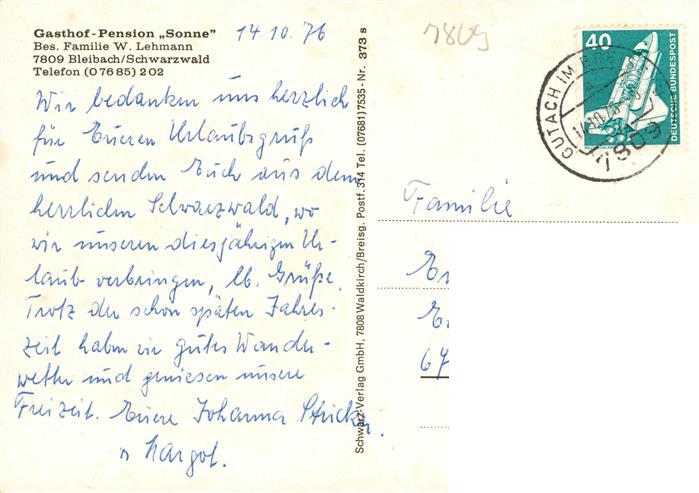 Gasthof-Pension „Sonne"
Bes. Familie W. Lehmann
7809 Bleibach/Schwarzwald
Telefon (07685) 202
14.10.76
Wir bedanken uns herzlich
für Eueren Urlaubsgruß
und senden Euch aus dem
herrlichen Schwarzwald, wo
wir unseren diesjährigen Ur-
laub verbringen, lb. Grüße.
Trotz der schon späten Jahres-
zeit haben wir gutes Wander-
wetter und geniesen unsere
Freizeit. Euere Johanna
u Margot.
Schwarz-Verlag GmbH, 7808 Waldkirch/Breisg. Postf. 314 Tel. (07681) 7535 - Nr. 373 s
7809
40
DEUTSCHE BUNDESPOST
GUTACH IM
7809
Familie
67